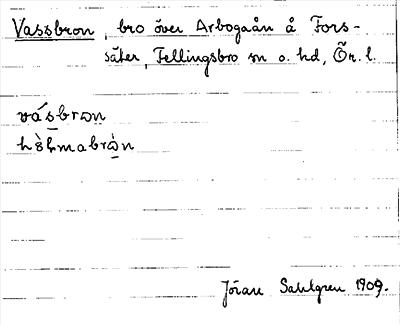 Vassbron, bro över Arbogaån å Fors-
säter, Fellingsbro sn o. hd, Ör. l.
vásbrɷn
hòlmabrɷ̀n
Jöran Sahlgren 1909.